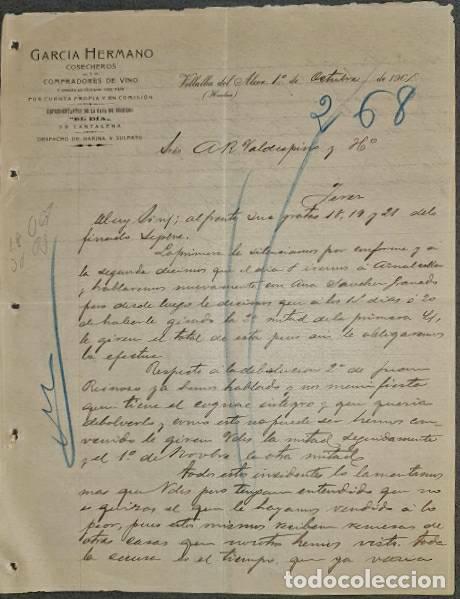 GARCIA HERMANO
COSECHEROS
Y
COMPRADORES DE VINO
POR CUENTA PROPIA Y EN COMISIÓN
REPRESENTANTES DE LA CASA DE
"EL DÍA"
DE CARTAGENA
DESPACHO DE HARINA Y SULFATO
Villalba del Alcor 1º de Octubre de 190
(Huelva)
268
Sres A R Valdespino y Hº
Jerez
Muy Sres mios; al frente sus gratas 18, 19 y 21 del
finado Sepbre.
La primera la silenciamos por conforme y a
la segunda decimos que el dia 1 iremos á
y hablaremos nuevamente con Ana Sanchez
pero desde luego le decimos que a los 15 dias ó 20
de haberle girado la 2ª mitad de la primera
le giren el total de esta pues asi le obligaremos
la efectue.
Respecto á la debolucion 2ª de Juan
Reinoso ya hemos hablado y nos manifiesta
que tiene el cognac integro y que queria
debolverlo y como esto no puede ser hemos con-
venido le giren Vdes la mitad seguidamente
y el 1º de Novbre la otra mitad.
Todos estos incidentes los lamentamos
mas que Vdes pero tengan entendido que no
es quizas el que le hayamos vendido á lo
peor, pues estos mismos reciben remesas de
otras casas que nosotros hemos visto. toda
la escusa es el tiempo, que ya varia
todocoleccion.net